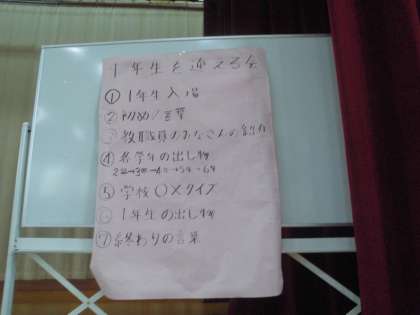 1年生を迎える会
① 1年生入場
② 初めの言葉
③ 教職員のみなさんの紹介
④ 各学年の出し物
2年→3年→4年→5年→6年
⑤ 学校○×クイズ
⑥ 1年生の出し物
⑦ 終わりの言葉